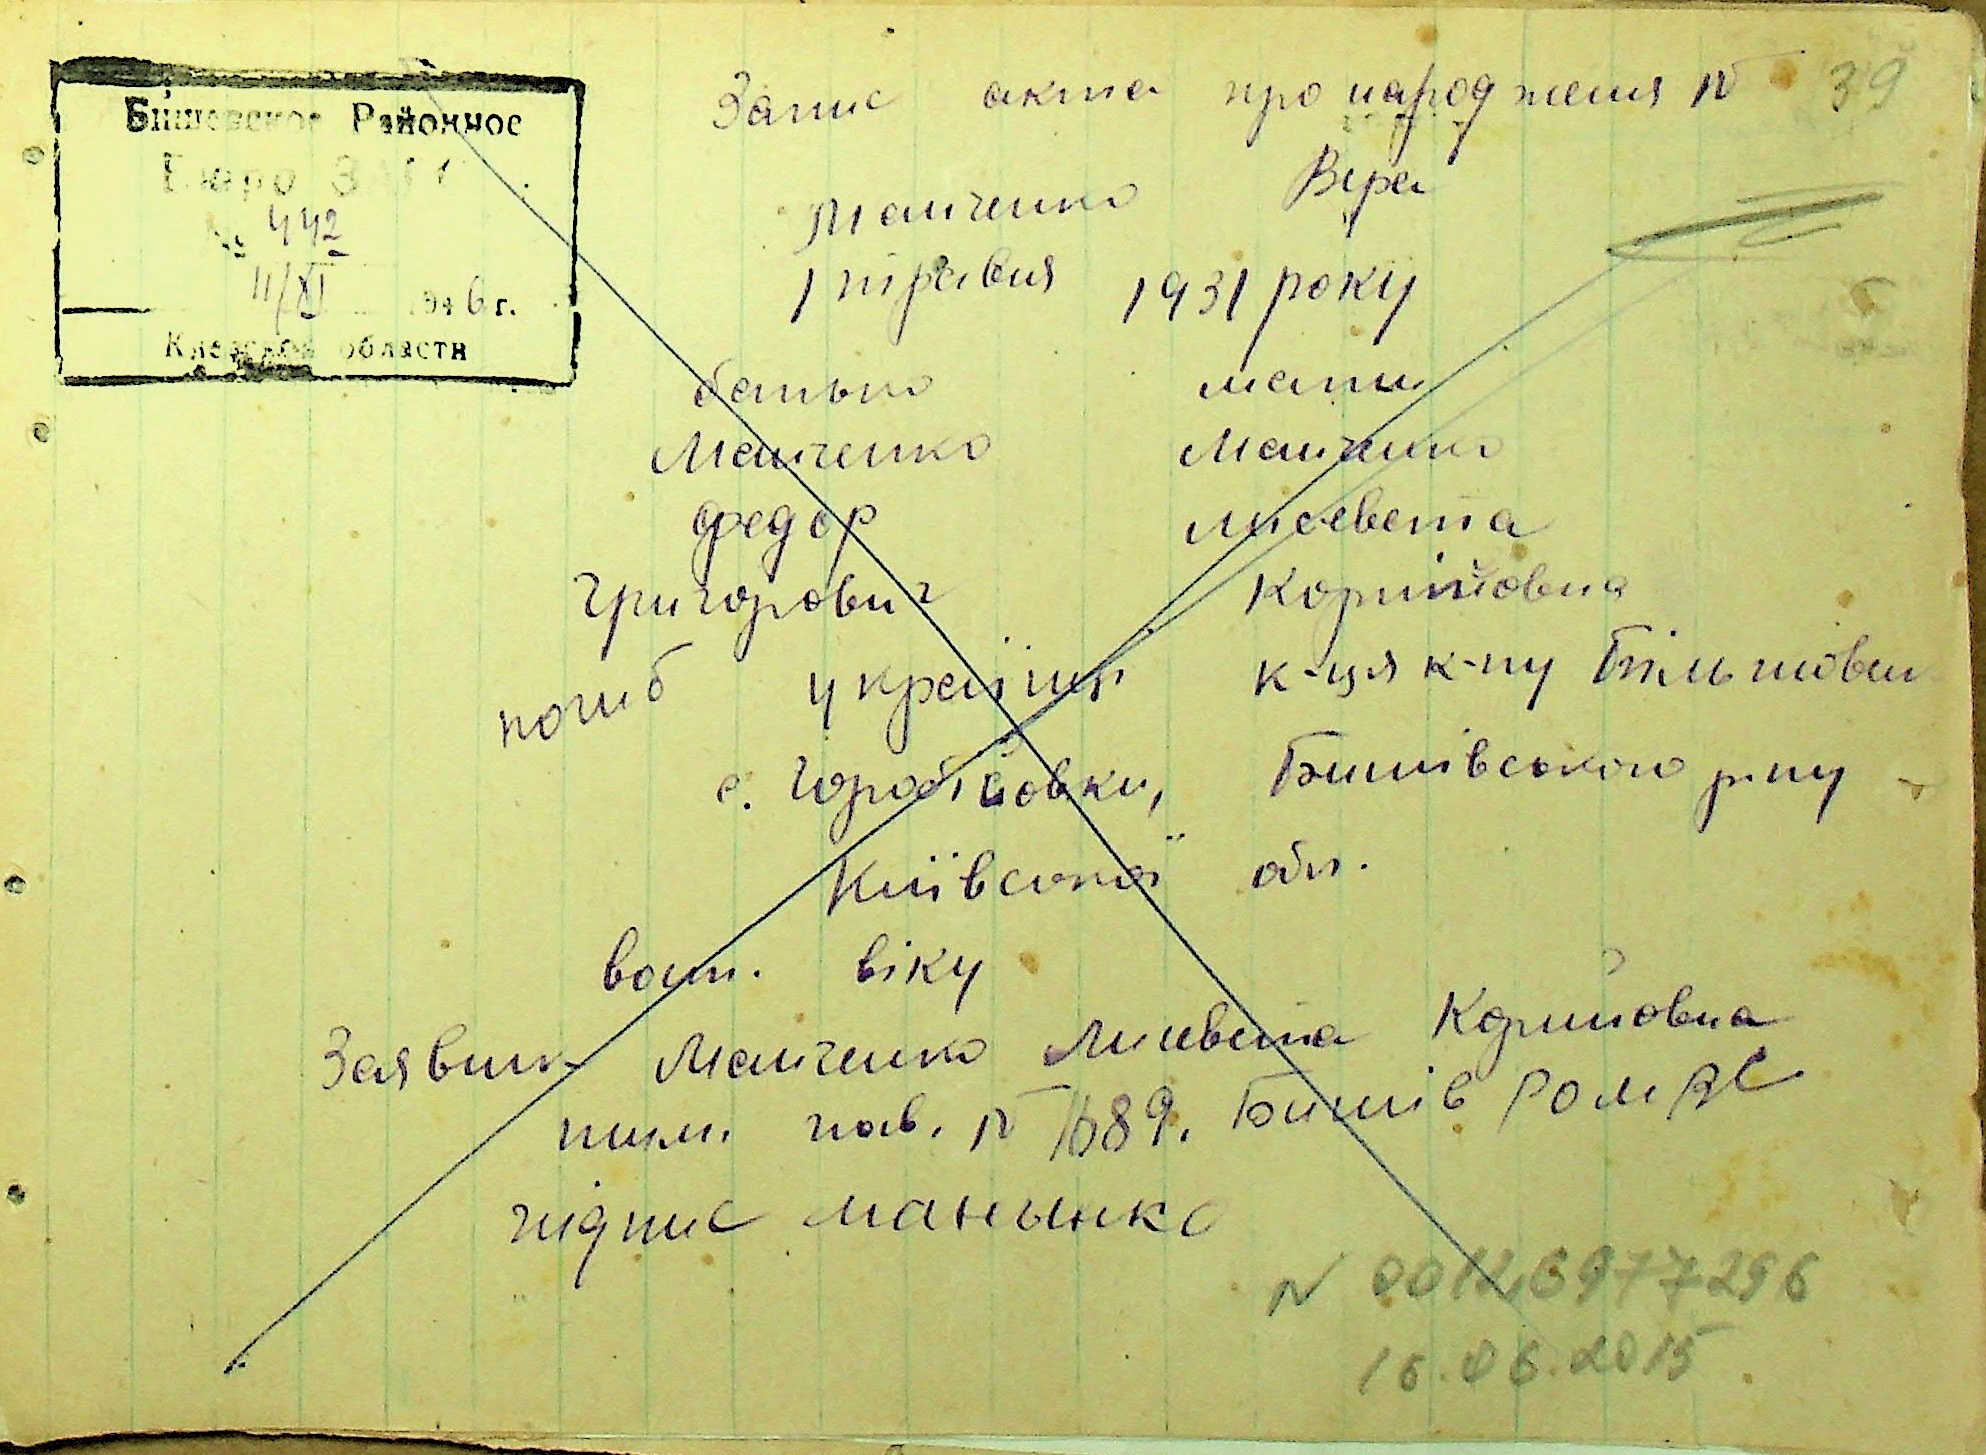 Бишевское Районное
Бюро ЗАГС
№ 442
11/XI 1946 г.
Киевской области
Запис акта про народження № 39
Манченко Віра
1 травня 1931 року
батько мати
Манченко Манченко
Федор Лисевета
Григорович Корнійовна
погиб українці к-ця к-пу Більшовик
с. Горобіёвки, Бишівського р-ну
Київської обл.
вост. віку
Заявник Манченко Лисевета Корнийовна
пим. пов. № 1689. Бишів РОМВС
підпис Манынко
N 00126977296
16.06.2015